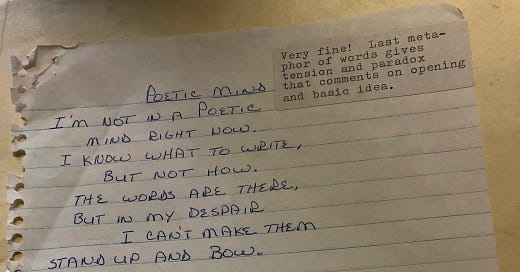 Very fine! Last meta-
phor of words gives
tension and paradox
that comments on opening
and basic idea.
POETIC MIND
I'M NOT IN A POETIC
MIND RIGHT NOW.
I KNOW WHAT TO WRITE,
BUT NOT HOW.
THE WORDS ARE THERE,
BUT IN MY DESPAIR
I CAN'T MAKE THEM
STAND UP AND BOW.